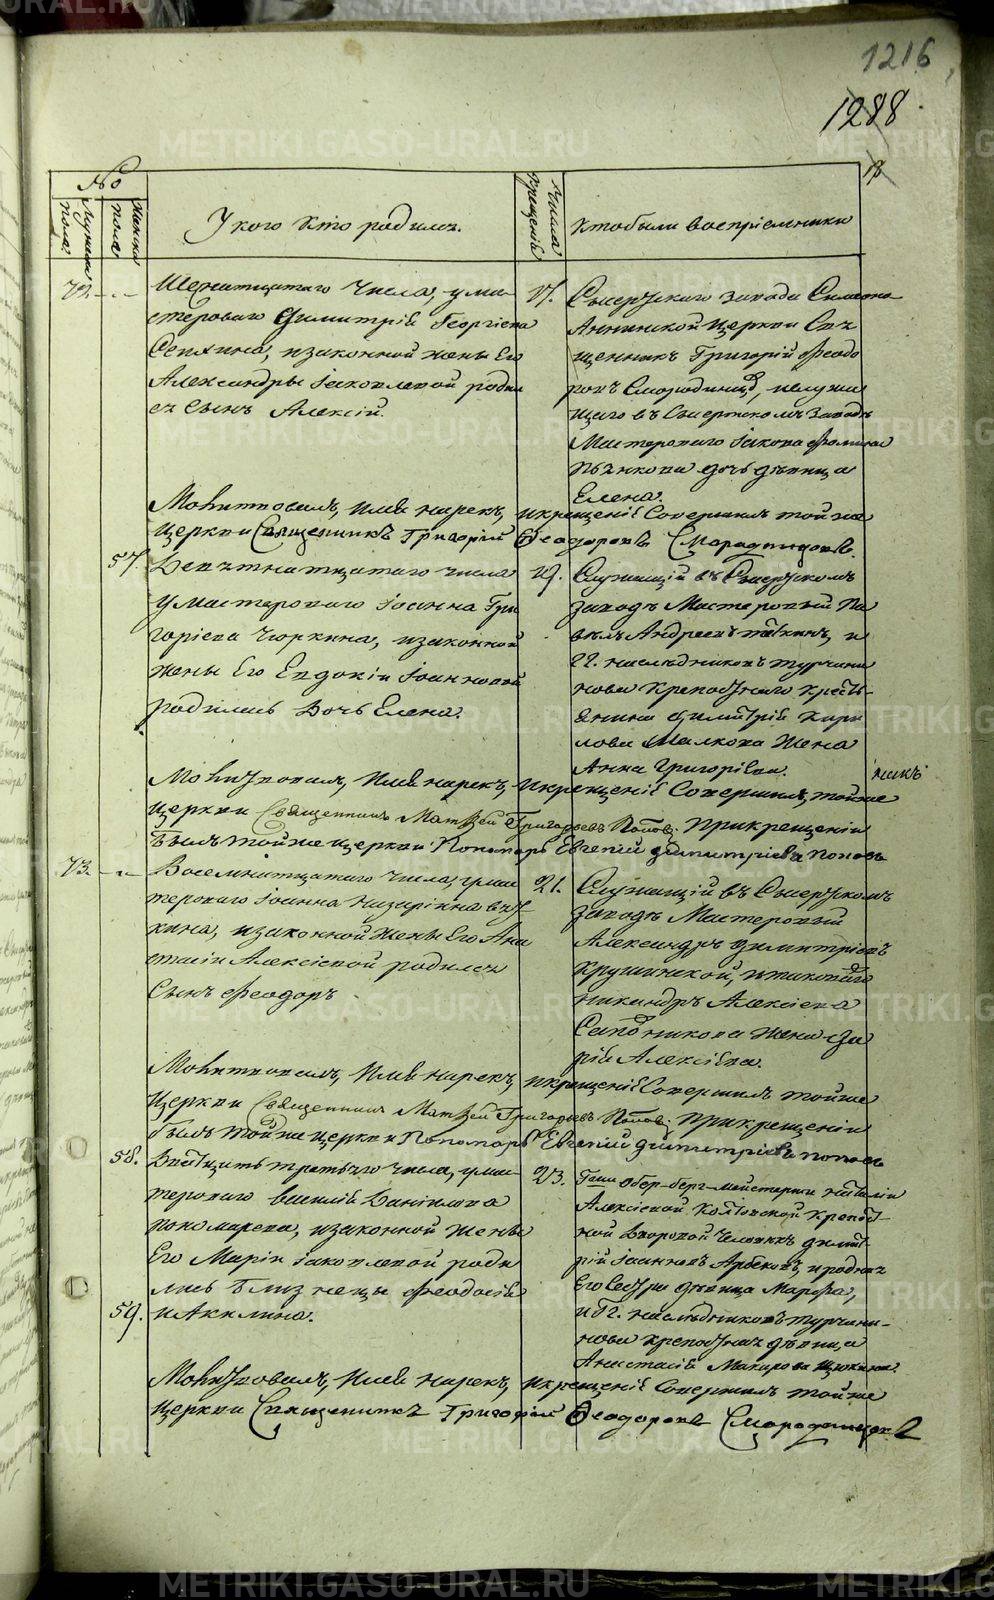 1216
1288
№
Мужска пола
Женска пола
У кого кто родилъ.
Числа крещенія
кто были воспріемники
72.
Шестнатцатаго числа, у ма-
стероваго Димитрія Георгіева
изаконной жены Его
Александры Іаковлевой роди
ся Сынъ Алексій.
17.
Сысертскаго завода Симеоно-
Аннинской церкви Свя
щенникъ Григорій Феодо
ровъ и служа
щаго въ Сысертскомъ Заводѣ
Мастероваго Іакова Фомина
дочь дѣвица
Елена.
Молитвовалъ, Имя нарекъ, икрещеніе Совершилъ тойже
церкви Священникъ Григорій Феодоровъ
57.
Девятнатцатаго числа
у Мастероваго Іоанна Гри
горіева Чюркина, изаконной
жены Его Евдокіи Іоанновой
родилась дочь Елена.
19.
Служащій въ Сысертскомъ
заводѣ Мастеровый Па
велъ Андреевъ и
ГГ. наслѣдниковъ Турчани
нова крепостнаго кресть-
янина Димитрія Кири
лова Малкова жена
Анна Григорьева.
Молитвовалъ, Имя нарекъ, икрещеніе Совершилъ, тойже
церкви Священникъ Матѳей Григорьевъ Поповъ. прикрещеніи
былъ тойже церкви Пономарь Евгеній Димитріевъ Поповъ
73.
Восемнатцатаго числа, у ма
стероваго Іоанна Назаріина
изаконной жены Его Ана
стасіи Алексіевой родился
Сынъ Феодоръ.
21.
Служащій въ Сысертскомъ
заводѣ Мастеровый
Александръ Димитріевъ
Крушинской, итаковаго
Никандръ Алексіева
Сапожникова жена Да
рія Алексіева.
Молитвовалъ, Имя нарекъ, икрещеніе Совершилъ тойже
церкви Священникъ Матѳей Григорьевъ Поповъ; прикрещеніи
былъ тойже церкви Пономарь Евгеній Димитріевъ Поповъ
58.
Дватцать третьяго числа, у ма-
стероваго Василія Данилова
Пономарева, изаконной жены
Его Маріи Іаковлевой роди
лись близнецы Феодосія
59.
и Акилина.
23.
Гжи Обер-берг-мейстерши Наталіи
Алексіевой Колтовской крепост
ной дворовой человекъ Дмит
рій Іоанновъ Арбековъ, и родная
Его Сестра дѣвица Марфа,
и ГГ. наслѣдниковъ Турчани-
нова крепостная дѣвица
Анастасія Макарова
Молитвовалъ, Имя нарекъ, икрещеніе Совершилъ тойже
церкви Священникъ Григорій Феодоровъ
METRIKI.GASO-URAL.RU